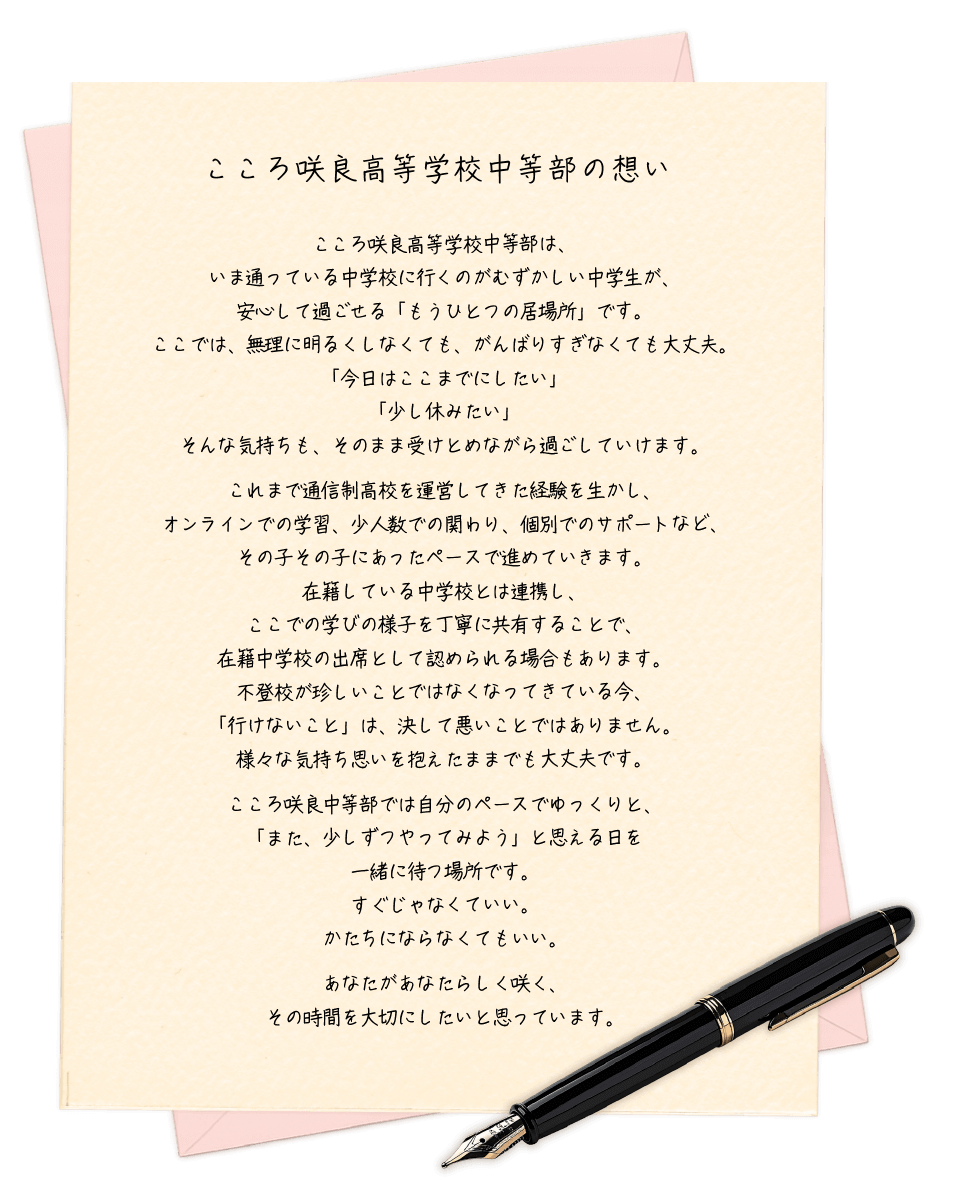 こころ咲良高等学校中等部の想い
こころ咲良高等学校中等部は、
いま通っている中学校に行くのがむずかしい中学生が、
安心して過ごせる「もうひとつの居場所」です。
ここでは、無理に明るくしなくても、がんばりすぎなくても大丈夫。
「今日はここまでにしたい」
「少し休みたい」
そんな気持ちも、そのまま受けとめながら過ごしていけます。
これまで通信制高校を運営してきた経験を生かし、
オンラインでの学習、少人数での関わり、個別でのサポートなど、
その子その子にあったペースで進めていきます。
在籍している中学校とは連携し、
ここでの学びの様子を丁寧に共有することで、
在籍中学校の出席として認められる場合もあります。
不登校が珍しいことではなくなってきている今、
「行けないこと」は、決して悪いことではありません。
様々な気持ち思いを抱えたままでも大丈夫です。
こころ咲良中等部では自分のペースでゆっくりと、
「また、少しずつやってみよう」と思える日を
一緒に待つ場所です。
すぐじゃなくていい。
かたちにならなくてもいい。
あなたがあなたらしく咲く、
その時間を大切にしたいと思っています。